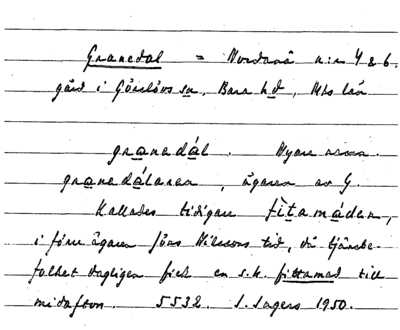 Granedal = Nordanå n:r 4 & 6.
gård i Görslövs sn, Bara hd, Mhs län
granedál. Nyare namn.
granedálaren, ägaren av G.
Kallades tidigare fìtamáden,
i förre ägaren Jöns Nilssons tid, då tjänste-
folket dagligen fick en s.k. fittamad till
midafton. 5532. I. Ingers 1950.